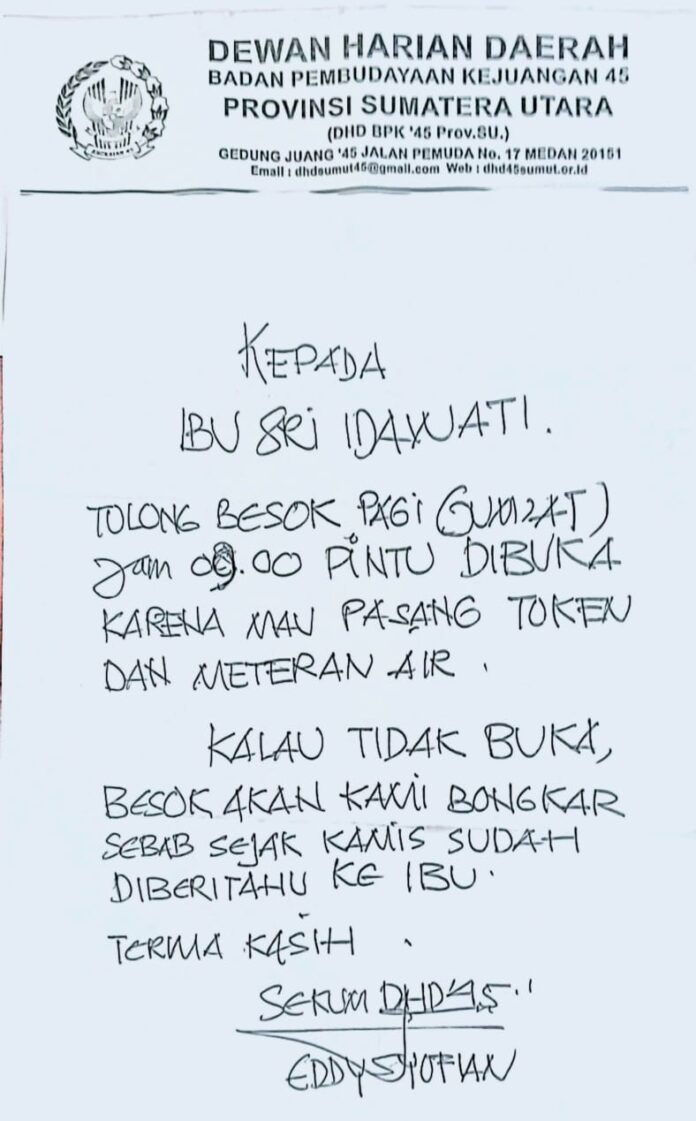 DEWAN HARIAN DAERAH
BADAN PEMBUDAYAAN KEJUANGAN 45
PROVINSI SUMATERA UTARA
(DHD BPK '45 Prov.SU.)
GEDUNG JUANG '45 JALAN PEMUDA No. 17 MEDAN 20151
Email : dhdsumut45@gmail.com Web : dhd45sumut.or.id
KEPADA
IBU SRI IDAYWATI.
TOLONG BESOK PAGI (JUM'AT)
Jam 09.00 PINTU DIBUKA
KARENA MAU PASANG TOKEN
DAN METERAN AIR .
KALAU TIDAK BUKA,
BESOK AKAN KAMI BONGKAR
SEBAB SEJAK KAMIS SUDAH
DIBERITAHU KE IBU.
TERIMA KASIH .
SEKUM DHD'45
EDDY SYOFIAN